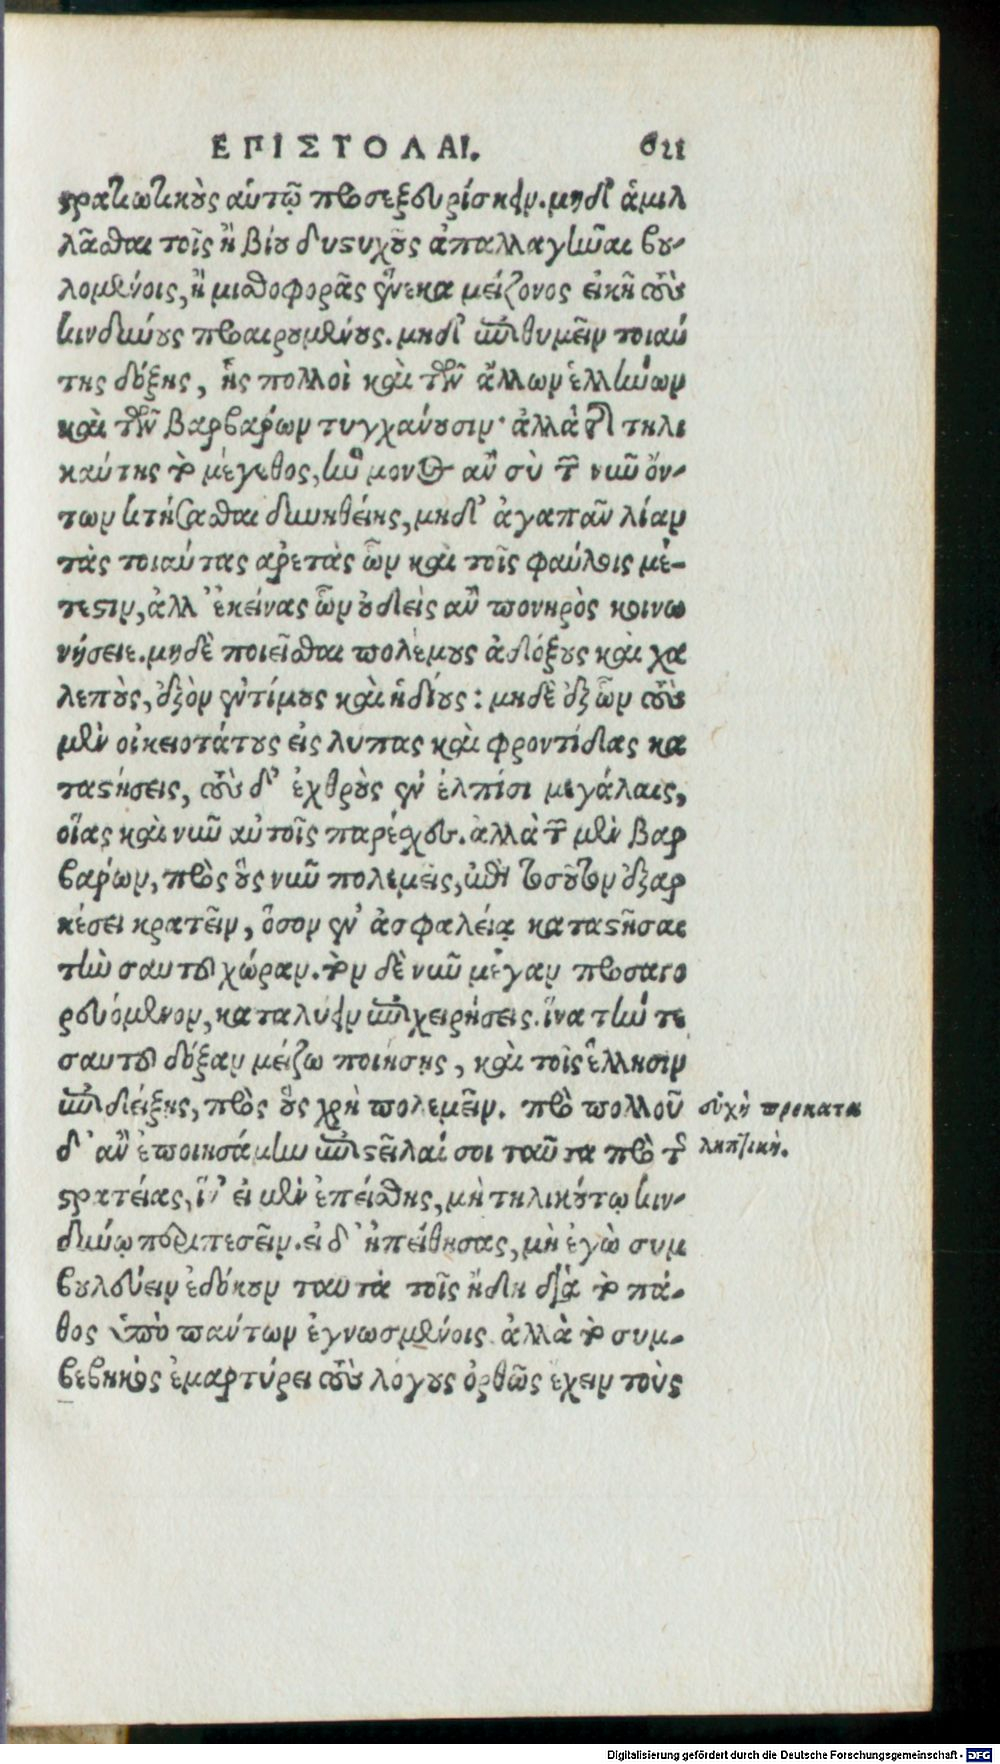 ΕΠΙΣΤΟΛΑΙ. 611
στρατιωτικοὺς αὑτῷ προσεξευρίσκειν. μηδ' ἁμιλ
λᾶσθαι τοῖς ἢ βίου δυστυχοῦς ἀπαλλαγῆναι βου-
λομένοις, ἢ μισθοφορᾶς ἕνεκα μείζονος εἰκῆ τοὺς
κινδύνους προαιρουμένους. μηδ' ἐπιθυμεῖν τοιαύ
της δόξης, ἧς πολλοὶ καὶ τῶν ἄλλων ἑλλήνων
καὶ τῶν βαρβάρων τυγχάνουσιν· ἀλλὰ τῆς τηλι
καύτης τὸ μέγεθος, ἣν μόνος ἂν σὺ τῶν νῦν ὄν-
των κτήσασθαι δυνηθείης, μηδ' ἀγαπᾶν λίαν
τὰς τοιαύτας ἀρετὰς ὧν καὶ τοῖς φαύλοις μέ-
τεστιν, ἀλλ' ἐκείνας ὧν οὐδεὶς ἂν πονηρὸς κοινω
νήσειε. μηδὲ ποιεῖσθαι πολέμους ἀδόξους καὶ χα
λεποὺς, ἐξὸν ἐντίμους καὶ ῥᾳδίους: μηδὲ ἐξ ὧν τοὺς
μὲν οἰκειοτάτους εἰς λύπας καὶ φροντίδας κα
ταστήσεις, τοὺς δ' ἐχθροὺς ἐν ἐλπίσι μεγάλαις,
οἵας καὶ νῦν αὐτοῖς παρέσχες. ἀλλὰ τῶν μὲν βαρ
βάρων, πρὸς οὓς νῦν πολεμεῖς, ἐπὶ τοσοῦτον ἐξαρ
κέσει κρατεῖν, ὅσον ἐν ἀσφαλείᾳ καταστῆσαι
τὴν σαυτοῦ χώραν. τὸν δὲ νῦν μέγαν προσαγο
ρευόμενον, καταλύειν ἐπιχειρήσεις. ἵνα τήν τε
σαυτοῦ δόξαν μείζω ποιήσῃς, καὶ τοῖς ἕλλησιν
ἐπιδείξῃς, πρὸς οὓς χρὴ πολεμεῖν. πρὸ πολλοῦ
δ' ἂν ἐποιησάμην ἐπιστεῖλαί σοι ταῦτα πρὸ τῆς
στρατείας, ἵν' εἰ μὲν ἐπείσθης, μὴ τηλικούτῳ κιν-
δύνῳ περιπεσεῖν. εἰ δ' ἠπείθησας, μὴ ἐγὼ συμ
βουλεύειν ἐδόκουν ταυτὰ τοῖς ἤδη διὰ τὸ πά-
θος ὑπὸ πάντων ἐγνωσμένοις. ἀλλὰ τὸ συμ-
βεβηκὸς ἐμαρτύρει τοὺς λόγους ὀρθῶς ἔχειν τοὺς
εὐχὴ προκατα
ληπτική.
Digitalisierung gefördert durch die Deutsche Forschungsgemeinschaft - DFG